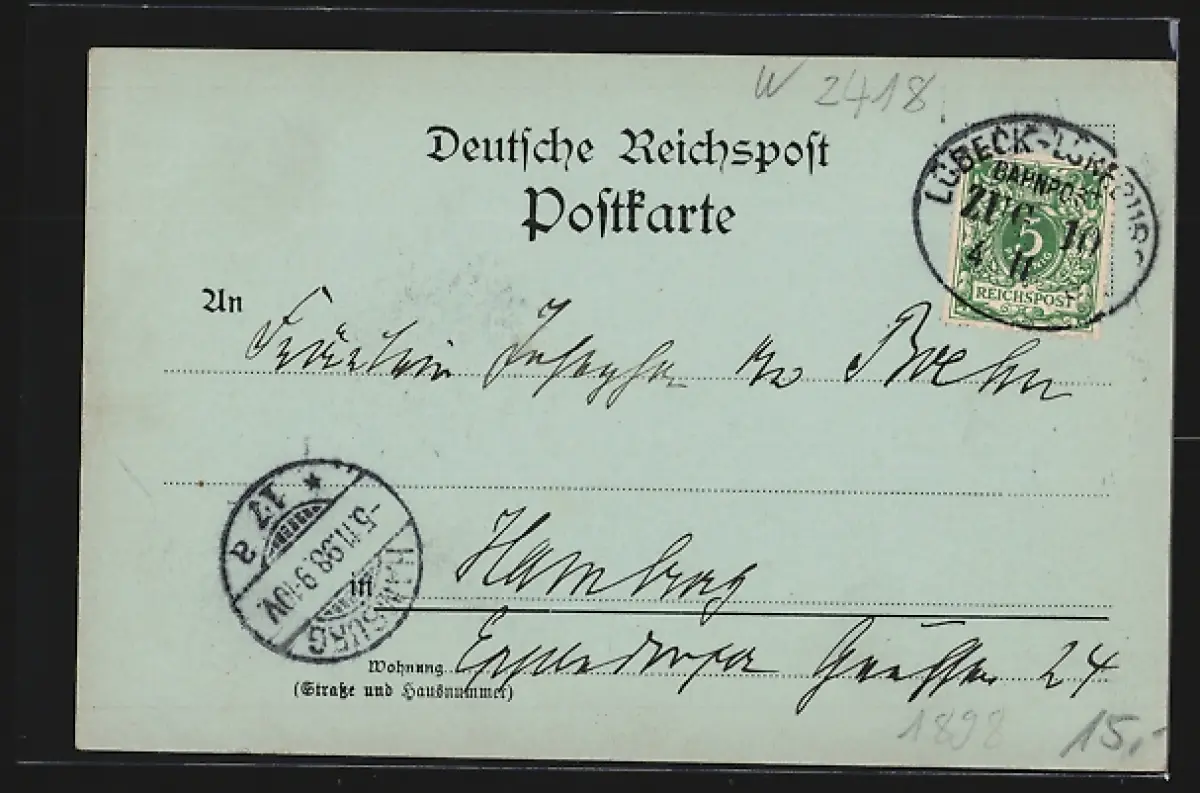 W 2418
Deutsche Reichspost
Postkarte
LÜBECK-LÜNEBURG
BAHNPOST
ZUG 10
4 11
5
REICHSPOST
An Fräulein
Hamburg
in
Wohnung Eppendorfer 24
(Straße und Hausnummer)
HAMBURG
-5.11.98.9-10V.
* 17 a
1898
15,-